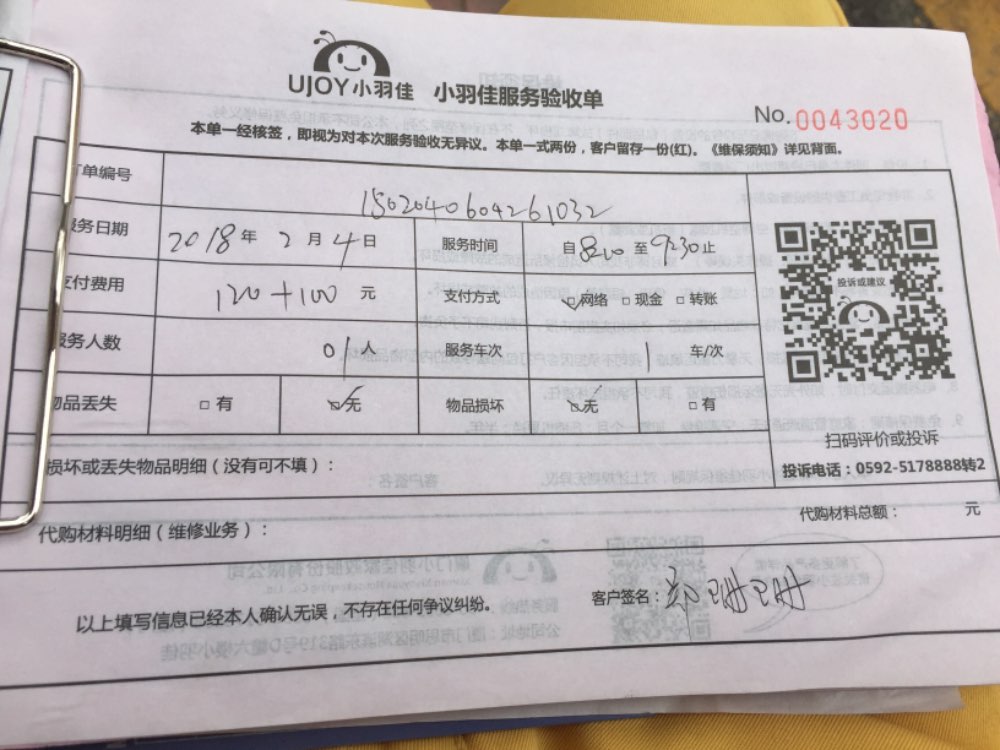 UJOY小羽佳 小羽佳服务验收单
No.0043020
本单一经核签，即视为对本次服务验收无异议。本单一式两份，客户留存一份(红)。《维保须知》详见背面。
订单编号 1502040604261032
服务日期 2018年2月4日 服务时间 自8:00至9:30止
支付费用 120+100 元 支付方式 ☑网络 □现金 □转账
投诉或建议
服务人数 01人 服务车次 1 车/次
物品丢失 □有 ☑无 物品损坏 ☑无 □有
扫码评价或投诉
损坏或丢失物品明细（没有可不填）：
投诉电话：0592-5178888转2
代购材料明细（维修业务）：
代购材料总额： 元
以上填写信息已经本人确认无误，不存在任何争议纠纷。
客户签名：郑珊珊